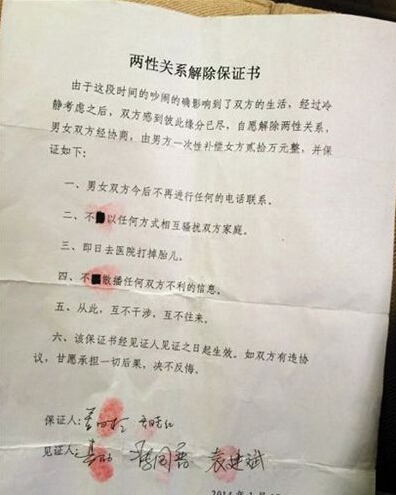 两性关系解除保证书
由于这段时间的吵闹的确影响到了双方的生活，经过冷
静考虑之后，双方感到彼此缘分已尽，自愿解除两性关系，
男女双方经协商，由男方一次性补偿女方贰拾万元整，并保
证如下：
一、男女双方今后不再进行任何的电话联系。
二、不以任何方式相互骚扰双方家庭。
三、即日去医院打掉胎儿。
四、不散播任何双方不利的信息。
五、从此，互不干涉，互不往来。
六、该保证书经见证人见证之日起生效。如双方有违协
议，甘愿承担一切后果，决不反悔。
保证人：
见证人： 袁建斌
2014